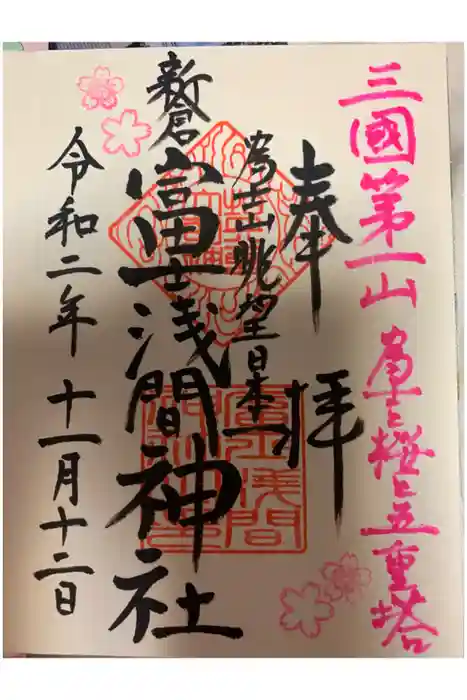 三國第一山 富士と桜と五重塔
奉拝
富士山眺望日本一
新倉
富士浅間神社
令和二年 十一月十二日